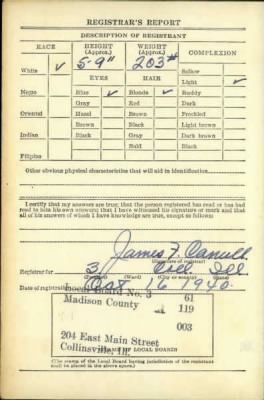 REGISTRAR'S REPORT
DESCRIPTION OF REGISTRANT
RACE HEIGHT (Approx.) WEIGHT (Approx.) COMPLEXION
White ✓ 5-9" 203# Sallow
EYES HAIR Light ✓
Negro Blue ✓ Blonde ✓ Ruddy
Gray Red Dark
Oriental Hazel Brown Freckled
Brown Black Light brown
Indian Black Gray Dark brown
Bald Black
Filipino
Other obvious physical characteristics that will aid in identification
I certify that my answers are true; that the person registered has read or has had
read to him his own answers; that I have witnessed his signature or mark and that
all of his answers of which I have knowledge are true, except as follows:
James F.
(Signature of registrar)
Registrar for 3 Coll. Ill
(Ward) (City or county)
Date of registration Oct 16 1940
Local Board No. 3 61
Madison County 119
003
204 East Main Street
Collinsville, Ill.
OF LOCAL BOARD)
(The stamp of the Local Board having jurisdiction of the registrant
shall be placed in the above space.)